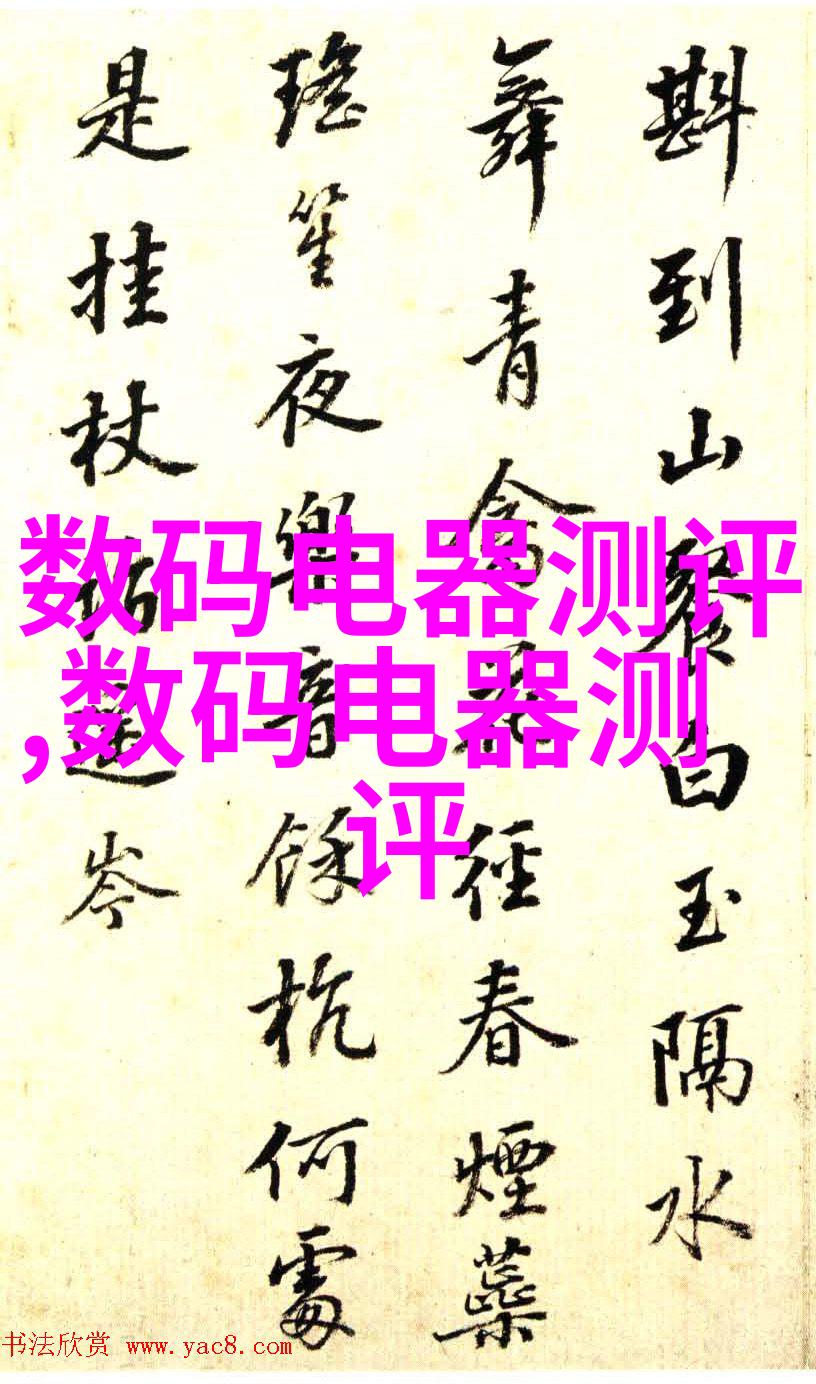 斟到山餐白玉隔水
舞青禽徑春煙蘂
瑤笙夜樂音餘杭何處
是挂杖岑
数码电器测评
,数码电器测
评
书法欣赏 www.yac8.com